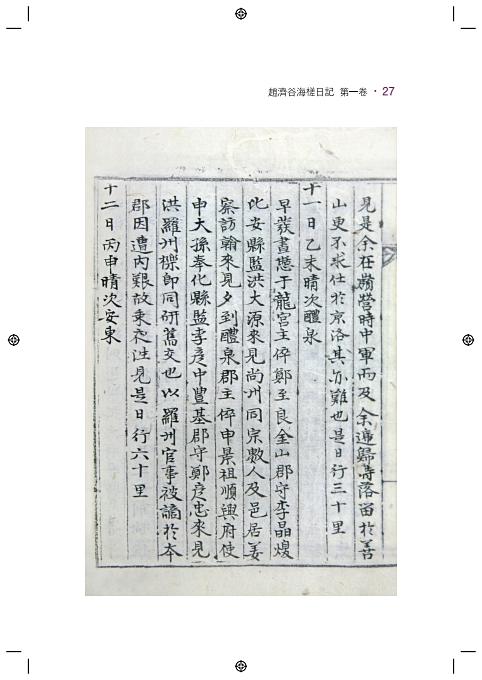 趙濟谷海槎日記 第一卷 · 27
見是余在嶺營時中軍而及余遞歸時落留於善
山更不求仕於京洛其亦難也是日行三十里
十一日乙未晴次醴泉
早發晝憇于龍宮主倅鄭至良金山郡守李晶煖
比安縣監洪大源來見尚州同宗數人及邑居姜
察訪翰來見夕到醴泉郡主倅申景祖順興府使
申大孫奉化縣監李彦中豊基郡守鄭彦忠來見
洪羅州櫟卽同硏舊交也以羅州官事被謫於本
郡因遭內艱故乘夜往見是日行六十里
十二日丙申晴次安東